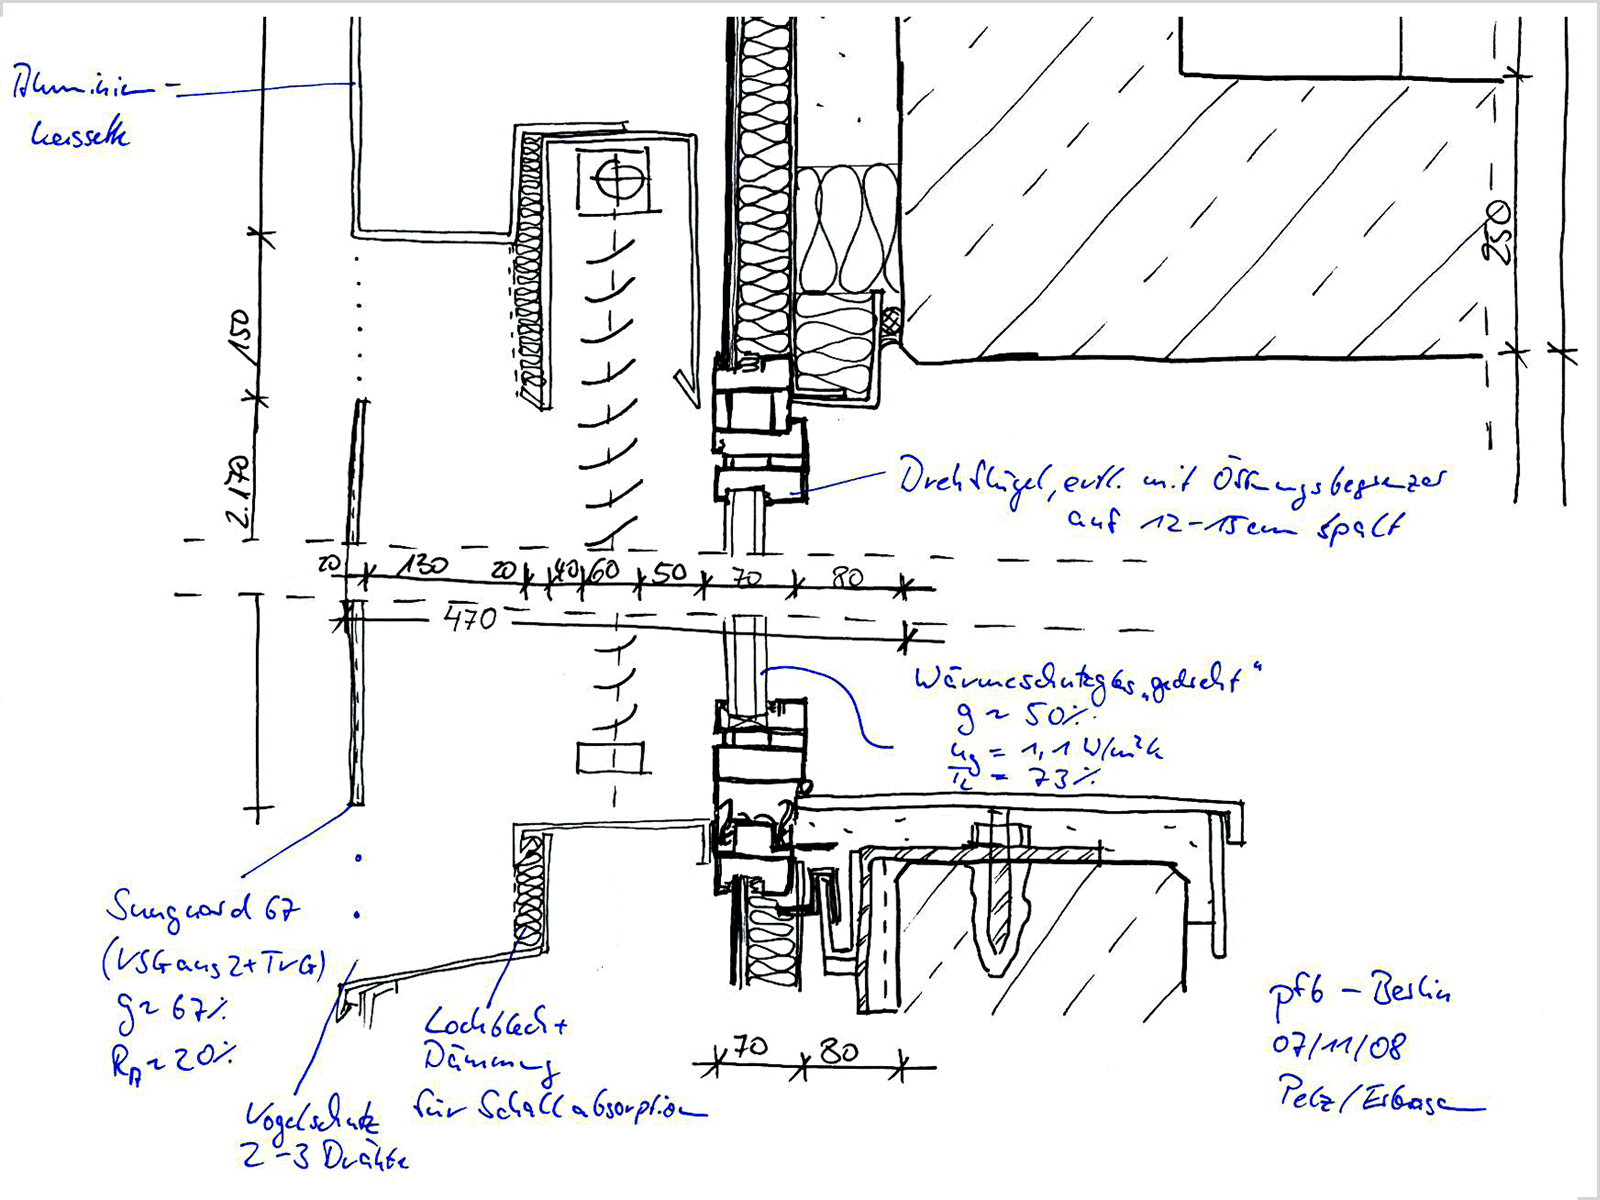 Aluminium-
kassette
250
150
2.170
Drehflügel, evtl. mit Öffnungsbegrenzer
auf 12-15cm Spalt
20 130 20 40 60 50 70 80
470
Wärmeschutzglas „gedreht“
g ~ 50%
ug = 1,1 W/m²k
τL = 73%
Sunguard 67
(VSG aus 2x TVG)
g ~ 67%
RA ~ 20%
Lochblech +
Dämmung
für Schallabsorption
Vogelschutz
2-3 Drähte
70 80
pfb - Berlin
07/11/08